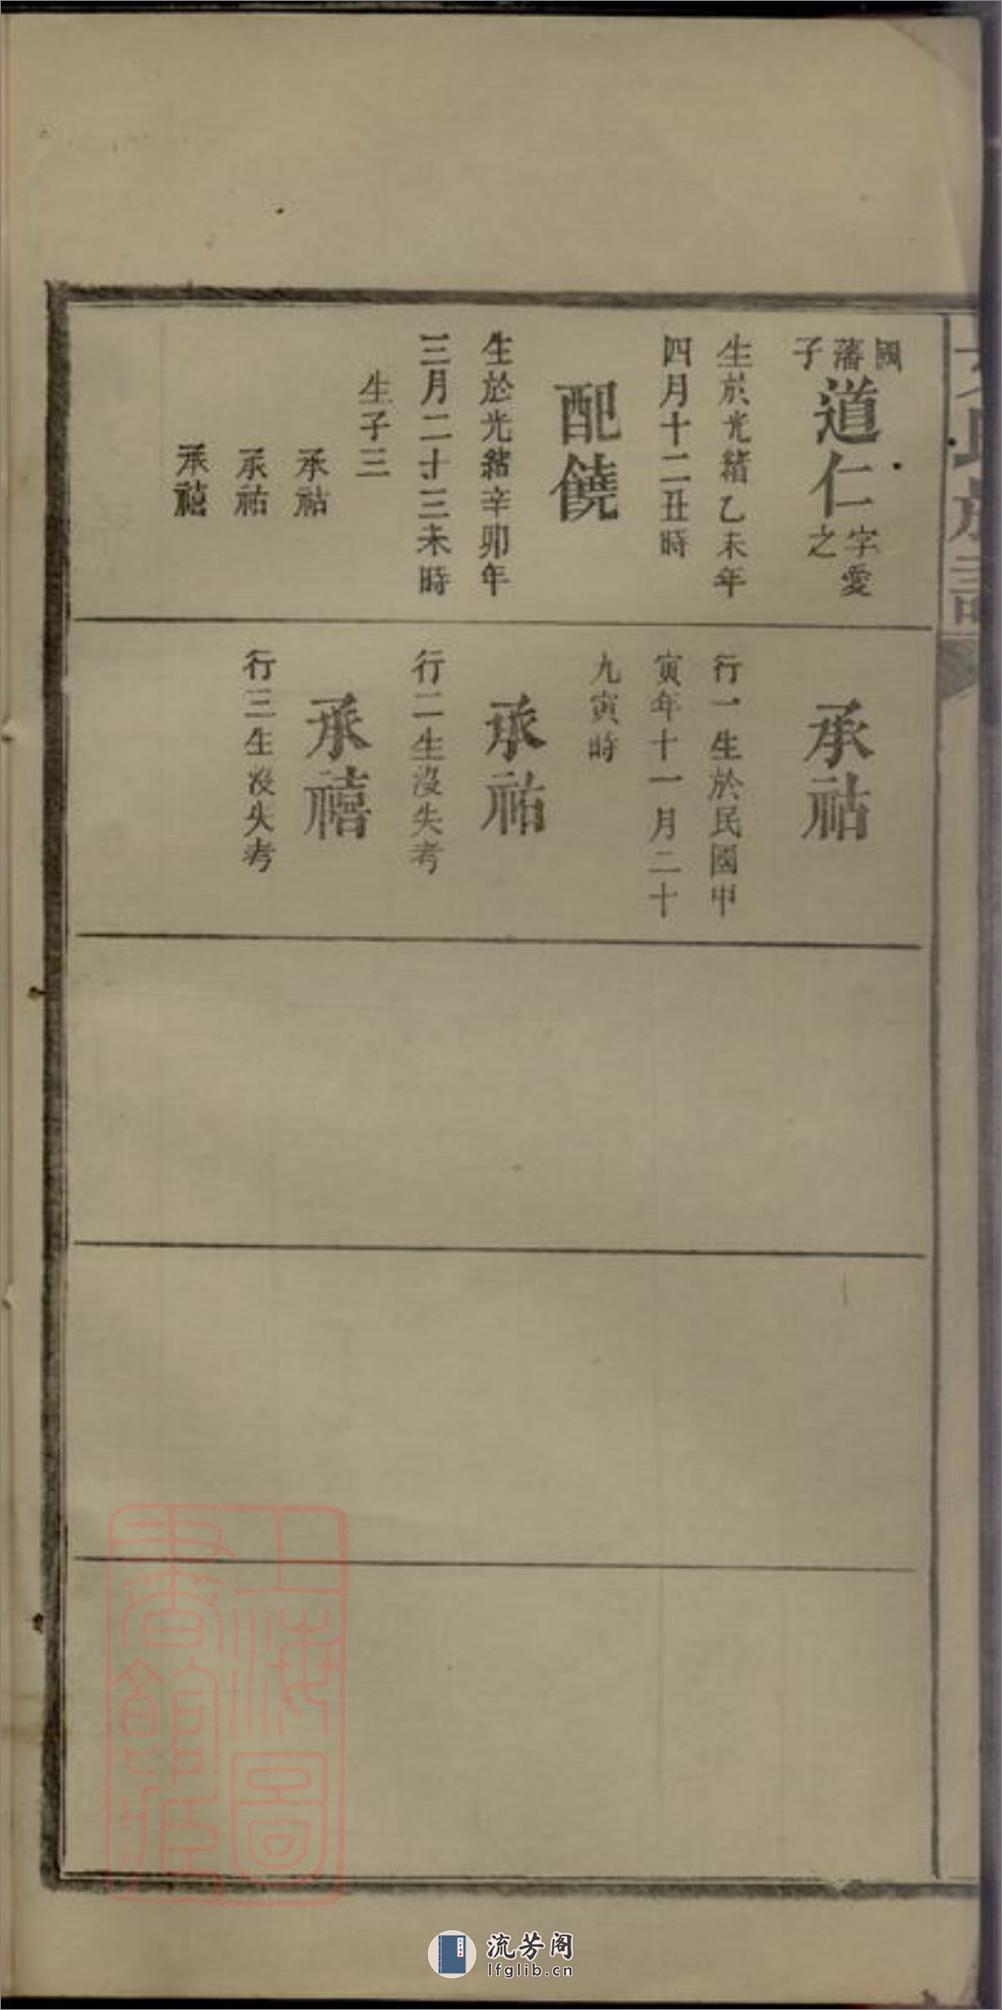 國藩子
道仁
字愛之
生於光緒乙未年
四月十二丑時
配饒
生於光緒辛卯年
三月二十三未時
生子三
承祜
承祐
承禧
承祜
行一生於民國甲
寅年十一月二十
九寅時
承祐
行二生沒失考
承禧
行三生沒失考
氏族譜
上海圖書館藏
流芳阁
lfglib.cn